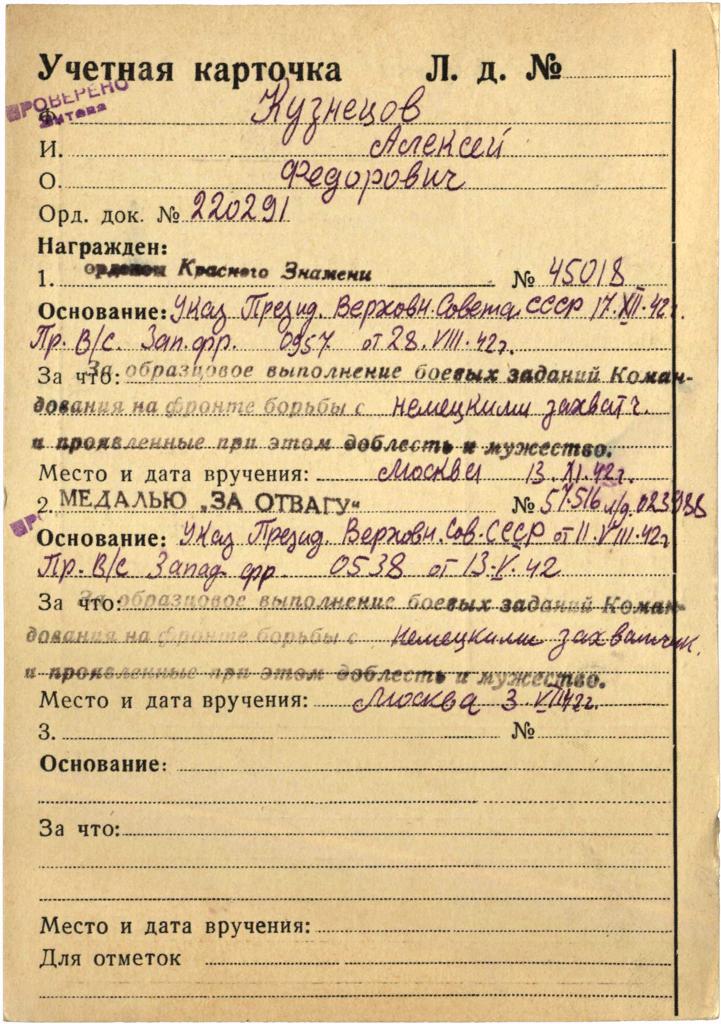 Учетная карточка Л. д. №
ПРОВЕРЕНО
Ф. Кузнецов
И. Алексей
О. Федорович
Орд. док. № 220291
Награжден:
1. орденом Красного Знамени № 45018
Основание: Указ Презид. Верховн. Совета СССР 17.XII.42г.
Пр. В/С. Зап. фр. 0957 от 28.VIII.42г.
За что: За образцовое выполнение боевых заданий Коман-
дования на фронте борьбы с немецкими захватч.
и проявленные при этом доблесть и мужество.
Место и дата вручения: Москва 13.XI.42г.
2. МЕДАЛЬЮ „ЗА ОТВАГУ“ № 57516 л/д 023988
Основание: Указ Презид. Верховн. Сов. СССР от 11.VIII.42г
Пр. В/С Запад. фр. 0538 от 13.V.42
За что: За образцовое выполнение боевых заданий Коман-
дования на фронте борьбы с немецкими захватчик.
и проявленные при этом доблесть и мужество.
Место и дата вручения: Москва 3.VIII 42г.
3. №
Основание:
За что:
Место и дата вручения:
Для отметок